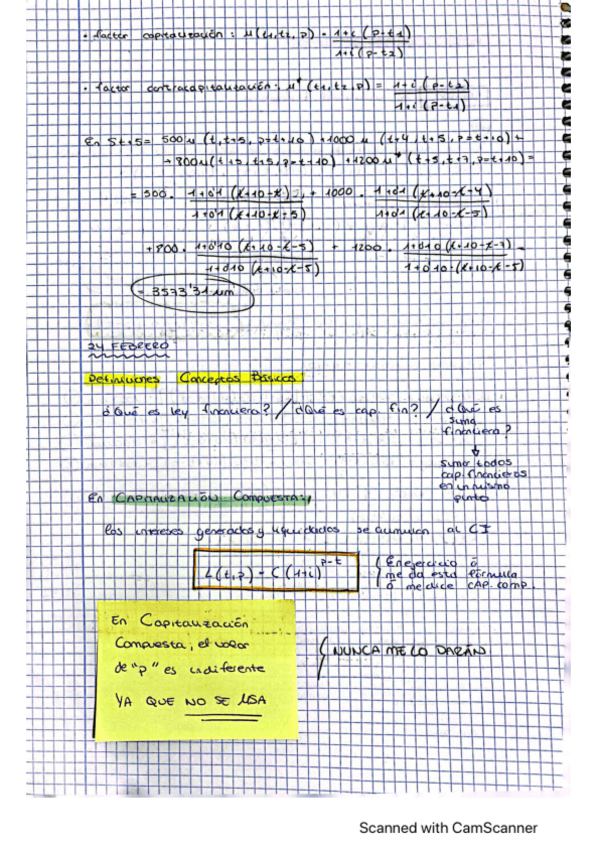 · factor capitalización: μ(t1,t2,p) = 1+i (p-t1)
1+i (p-t2)
· factor contracapitalización: μ* (t1,t2,p) = 1+i (p-t2)
1+i (p-t1)
En St+5= 500μ (t,t+5, p=t+10) +1000 μ (t+4, t+5, p=t+10) +
+800μ(t+5, t+5, p=t+10) +1200μ* (t+5, t+7, p=t+10) =
= 500 · 1+0'1 (t+10-t) + 1000 · 1+0'1 (t+10-t-4)
1+0'1 (t+10-t-5) 1+0'1 (t+10-t-5)
+800 · 1+0'10 (t+10-t-5) + 1200 · 1+0'10 (t+10-t-7) =
1+0'10 (t+10-t-5) 1+0'10 · (t+10-t-5)
= 3573'31 um
24 FEBRERO
Definiciones Conceptos Básicos:
¿Qué es ley financiera? / ¿Qué es cap. fin? / ¿Qué es
suma
financiera?
↓
sumar todos
cap. financieros
en un mismo
punto
En CAPITALIZACIÓN COMPUESTA:
los intereses generados y liquidados se acumulan al CI
L(t,p) = C (1+i)^p-t
En ejercicio ó
me da esta fórmula
ó me dice CAP. comp.
En Capitalización
Compuesta, el valor
de "p" es indiferente
YA QUE NO SE USA
NUNCA ME LO DARÁN
Scanned with CamScanner